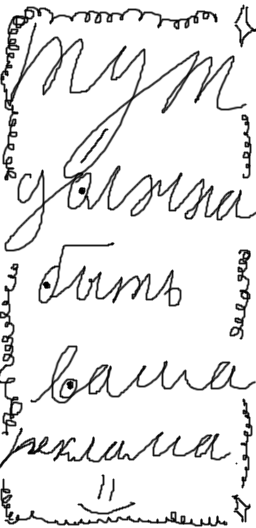 тут
должна
быть
ваша
реклама
=)